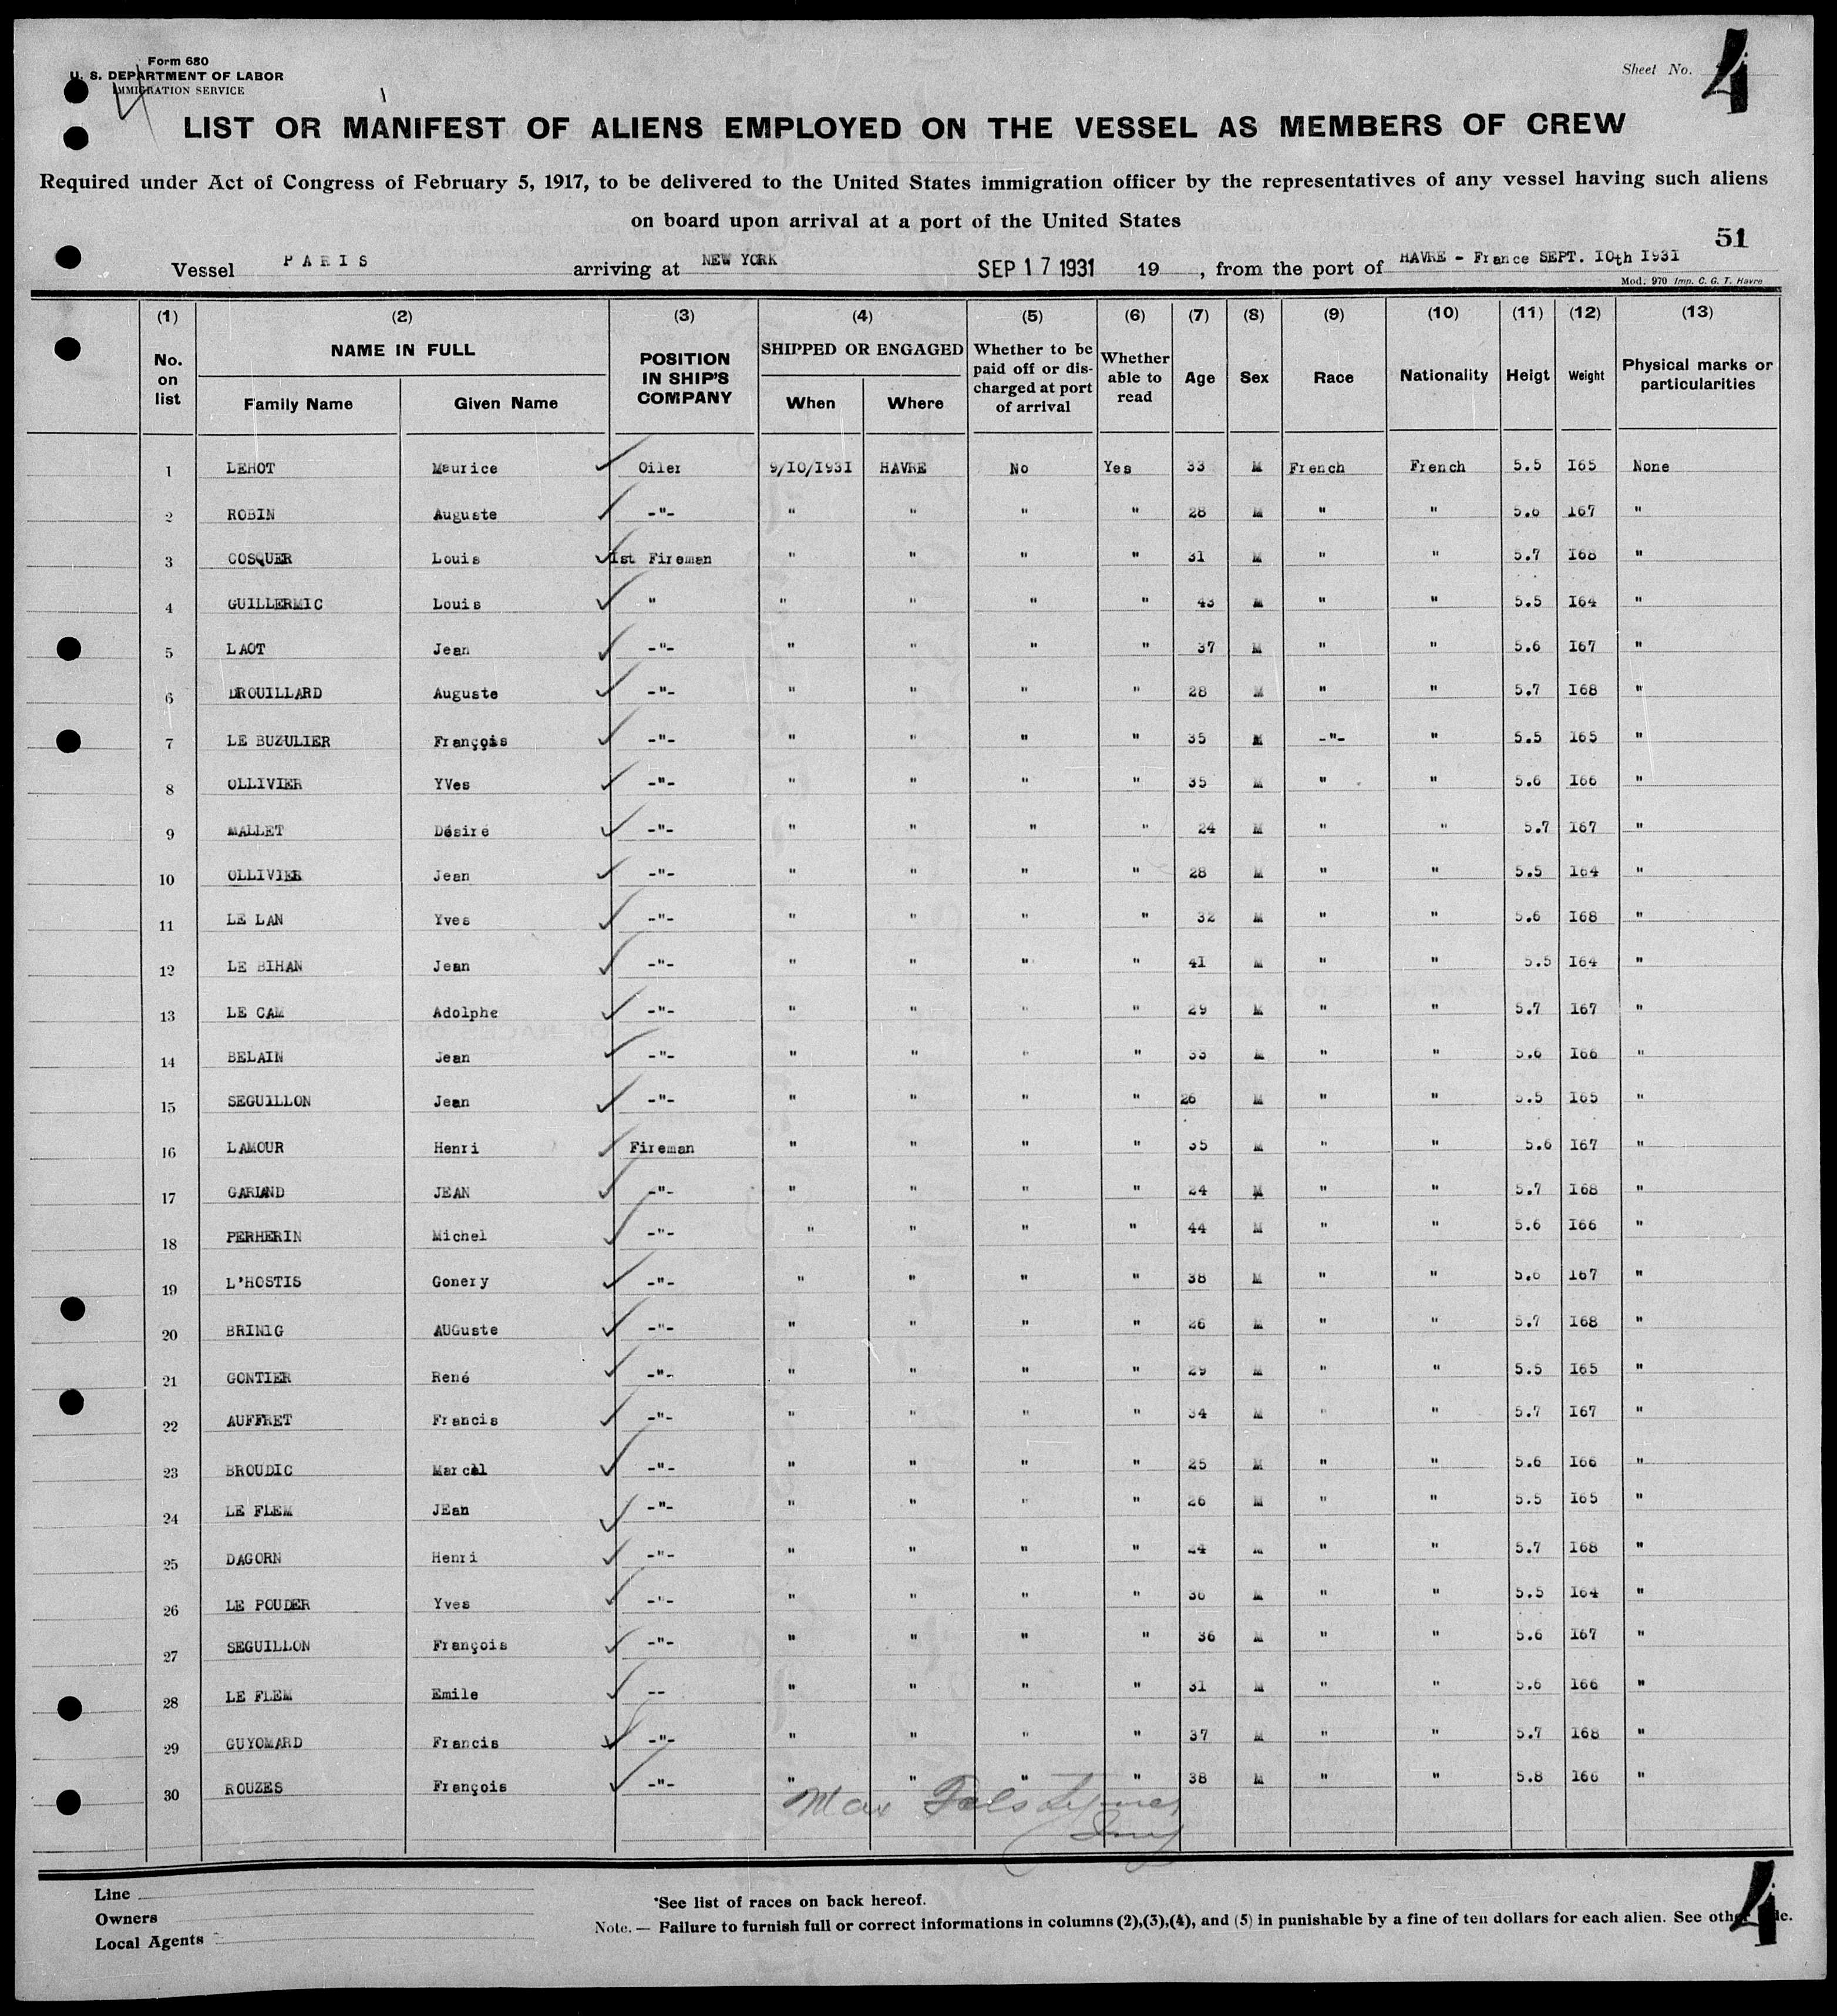 Form 680
U. S. DEPARTMENT OF LABOR
IMMIGRATION SERVICE
Sheet No. 4
LIST OR MANIFEST OF ALIENS EMPLOYED ON THE VESSEL AS MEMBERS OF CREW
Required under Act of Congress of February 5, 1917, to be delivered to the United States immigration officer by the representatives of any vessel having such aliens
on board upon arrival at a port of the United States
51
Vessel PARIS arriving at NEW YORK SEP 17 1931 19 , from the port of HAVRE - France SEPT. IOth I93I
Mod. 970 Imp. C. G. T. Havre
(1) (2) (3) (4) (5) (6) (7) (8) (9) (10) (11) (12) (13)
No. on list NAME IN FULL Family Name Given Name POSITION IN SHIP'S COMPANY SHIPPED OR ENGAGED When Where Whether to be paid off or discharged at port of arrival Whether able to read Age Sex Race Nationality Heigt Weight Physical marks or particularities
1 LEHOT Maurice Oiler 9/IO/I93I HAVRE No Yes 33 M French French 5.5 I65 None
2 ROBIN Auguste -"- " " " " 28 M " " 5.6 I67 "
3 COSQUER Louis Ist Fireman " " " " 31 M " " 5.7 I68 "
4 GUILLERMIC Louis " " " " " 43 M " " 5.5 I64 "
5 LAOT Jean -"- " " " " 37 M " " 5.6 I67 "
6 DROUILLARD Auguste -"- " " " " 28 M " " 5.7 I68 "
7 LE BUZULIER François -"- " " " " 35 M -"- " 5.5 I65 "
8 OLLIVIER YVes -"- " " " " 35 M " " 5.6 I66 "
9 MALLET Désiré -"- " " " " 24 M " " 5.7 I67 "
10 OLLIVIER Jean -"- " " " " 28 M " " 5.5 I64 "
11 LE LAN Yves -"- " " " " 32 M " " 5.6 I68 "
12 LE BIHAN Jean -"- " " " " 41 M " " 5.5 I64 "
13 LE CAM Adolphe -"- " " " " 29 M " " 5.7 I67 "
14 BELAIN Jean -"- " " " " 33 M " " 5.6 I66 "
15 SEGUILLON Jean -"- " " " " 26 M " " 5.5 I65 "
16 LAMOUR Henri Fireman " " " " 35 M " " 5.6 I67 "
17 GARLAND JEAN -"- " " " " 24 M " " 5.7 I68 "
18 PERHERIN Michel -"- " " " " 44 M " " 5.6 I66 "
19 L'HOSTIS Gonery -"- " " " " 38 M " " 5.6 I67 "
20 BRINIG AUGuste -"- " " " " 26 M " " 5.7 I68 "
21 GONTIER René -"- " " " " 29 M " " 5.5 I65 "
22 AUFFRET Francis -"- " " " " 34 M " " 5.7 I67 "
23 BROUDIC Marcel -"- " " " " 25 M " " 5.6 I66 "
24 LE FLEM JEan -"- " " " " 26 M " " 5.5 I65 "
25 DAGORN Henri -"- " " " " 24 M " " 5.7 I68 "
26 LE POUDER Yves -"- " " " " 36 M " " 5.5 I64 "
27 SEGUILLON François -"- " " " " 36 M " " 5.6 I67 "
28 LE FLEM Emile -- " " " " 31 M " " 5.6 I66 "
29 GUYOMARD Francis -"- " " " " 37 M " " 5.7 I68 "
30 ROUZES François -"- " " " " 38 M " " 5.8 I66 "
Max
Line
Owners
Local Agents
*See list of races on back hereof.
Note. — Failure to furnish full or correct informations in columns (2),(3),(4), and (5) in punishable by a fine of ten dollars for each alien. See other side.
4